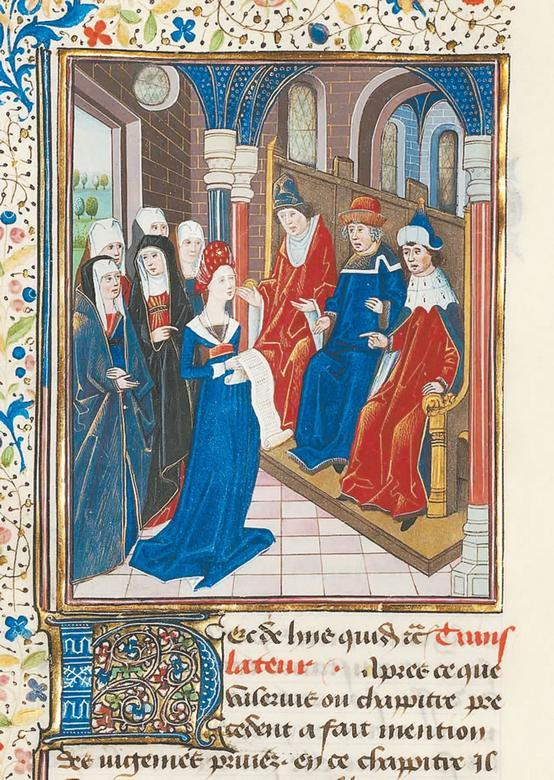 Nec de hiis quid̃ ⁊c̃ Trans
lateur . Apres ce que
Valerius ou chappitre pre
cedent a fait mention
des iugemens priuez. en ce chappitre Il